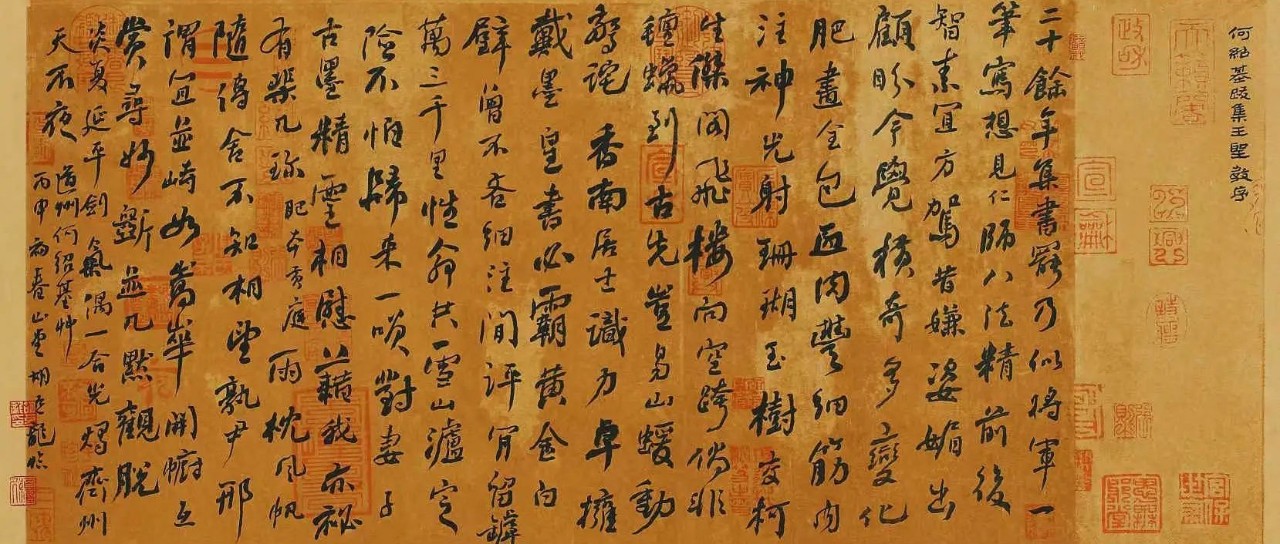 何紹基跋集王聖教序
二十餘年集書罷乃似將軍一
筆寫想見仁師八法精前後
智素宜方駕昔嫌姿媚出
顧盼今覺橫奇多變化
肥畫全包血肉豐細筋內
注神光射珊瑚玉樹交柯
生傑閣飛樓向空跨俗非
到古先豈易山蠖動
驚詫香南居士識力卓擁
戴墨皇書必霸黃金白
璧曾不吝細注閒評肯留罅
萬三千里性命共一雪山瀘定
險不怕歸來一唄對妻子
古墨精靈相慰藉我亦祕
有棐几珎肥本黃庭雨枕風帆
隨得舍不知相望孰尹邢
謂宜並峙如嵩華開幮五
賞尋妙斷並几默觀脫
炎夏延平劍氣偶一合光燭齊州
天不夜 道州何紹基艸
丙申